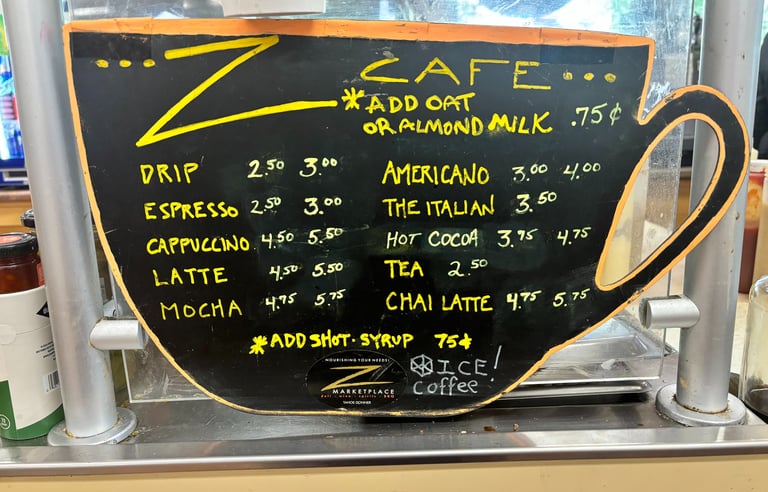 ...Z CAFE...
*ADD OAT
OR ALMOND MILK .75¢
DRIP 2.50 3.00
ESPRESSO 2.50 3.00
CAPPUCCINO 4.50 5.50
LATTE 4.50 5.50
MOCHA 4.75 5.75
AMERICANO 3.00 4.00
THE ITALIAN 3.50
HOT COCOA 3.75 4.75
TEA 2.50
CHAI LATTE 4.75 5.75
*ADD SHOT·SYRUP 75¢
NOURISHING YOUR NEEDS!
Z
MARKETPLACE
deli · wine · spirits · BBQ
TAHOE DONNER
ICE!
Coffee